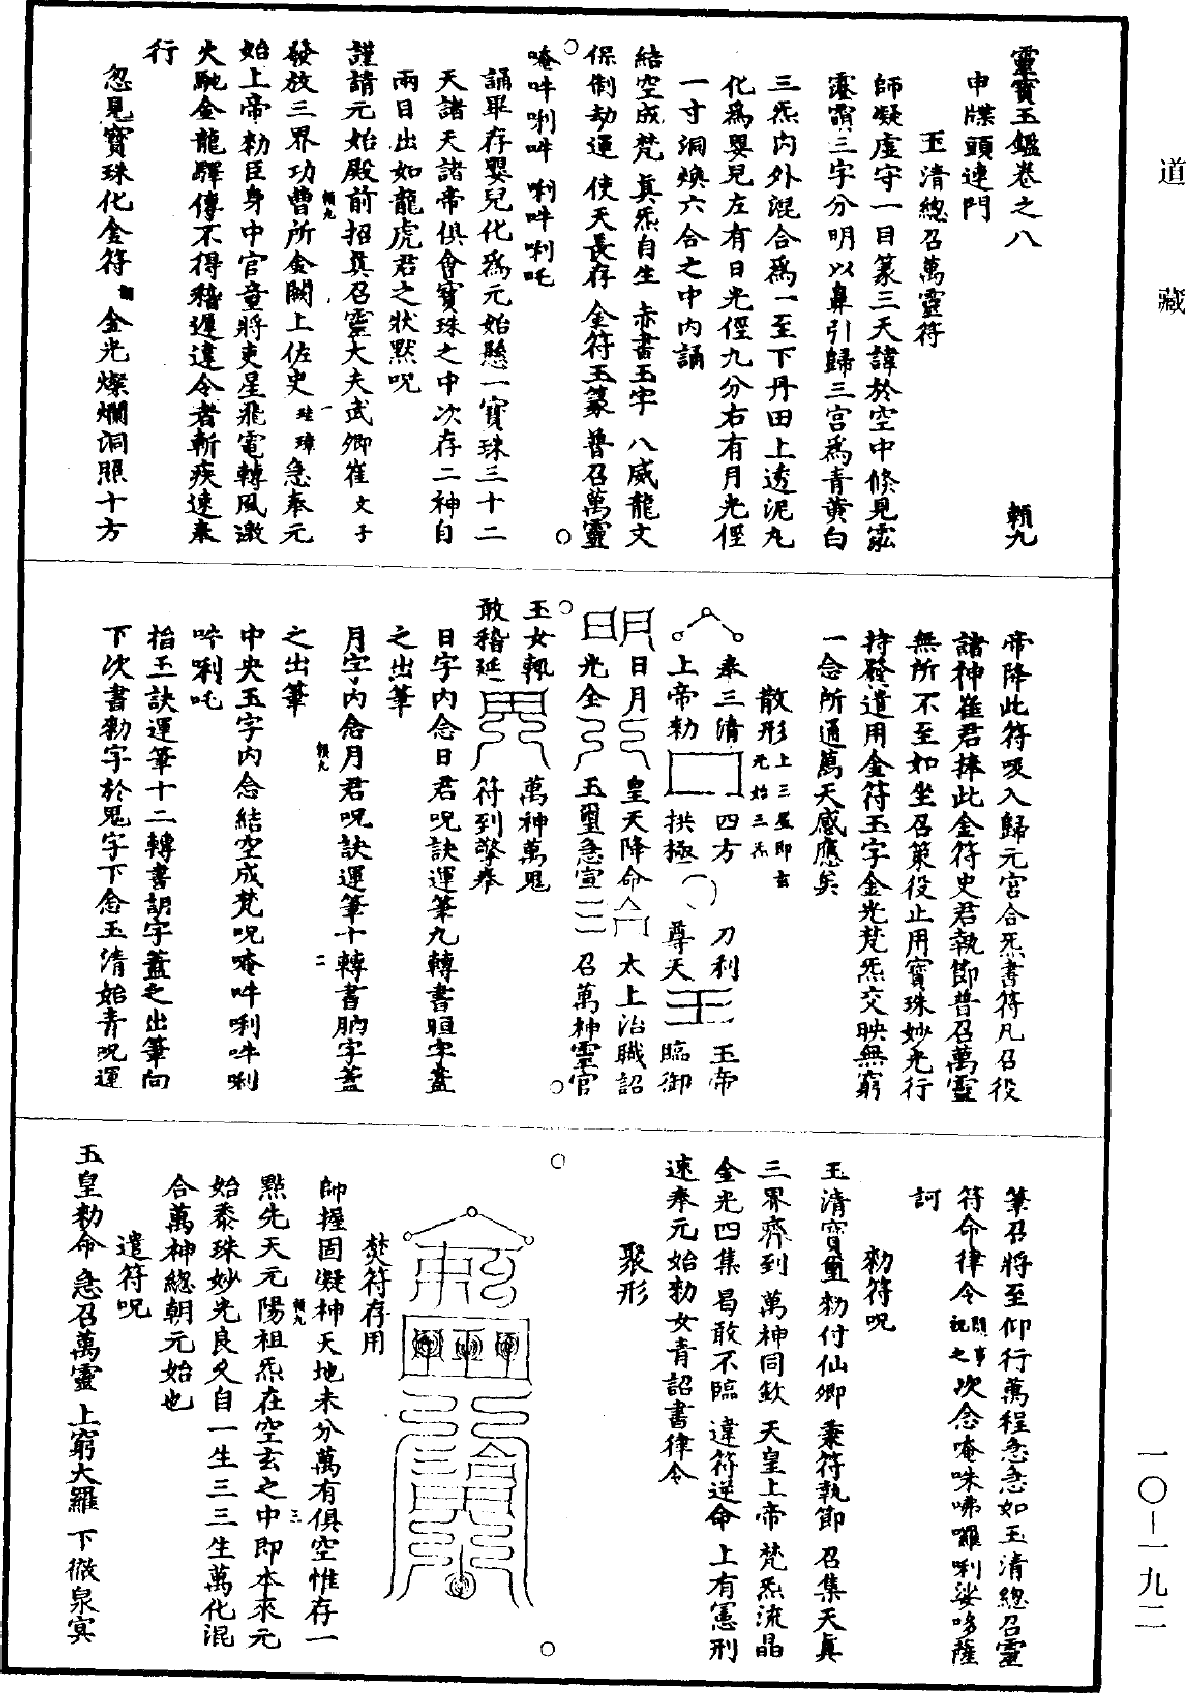 道藏
靈寶玉鑑卷之八 賴九
申牒頭連門
玉清總召萬靈符
師凝虛守一目篆三天諱於空中倏見
三字分明以鼻引歸三宮爲青黃白
三炁內外混合爲一至下丹田上透泥丸
化爲嬰兒左有日光徑九分右有月光徑
一寸洞煥六合之中內誦
結空成梵 真炁自生 赤書玉字 八威龍文
保制劫運 使天長存 金符玉篆 普召萬靈
唵吽唎吽唎吽唎吒
誦畢存嬰兒化爲元始懸一寶珠三十二
天諸天諸帝俱會寶珠之中次存二神自
兩目出如龍虎君之狀默呪
謹請元始殿前招真召靈大夫武卿崔文子
發放三界功曹所金闕上佐史珪璋急奉元
始上帝勑臣身中官童將吏星飛電轉風激
火馳金龍驛傳不得稽遲違令者斬疾速奉
行
忽見寶珠化金符 金光燦爛洞照十方
帝降此符吸入歸元宮合炁書符凡召役
諸神崔君捧此金符史君執節普召萬靈
無所不至如坐召策役止用寶珠妙光行
持發遣用金符玉字金光梵炁交映無窮
一念所通萬天感應矣
散形上三星即玄元始三炁
奉三清 四方 刀利 玉帝
上帝勑 拱極 尊天 臨御
日月 皇天降命 太上治職詔
光金 玉璽急宣 召萬神靈官
玉女執 萬神萬鬼
敢稽延 符到擎奉
日字內念日君呪訣運筆九轉書晅字蓋
之出筆
月字內念月君呪訣運筆十轉書朒字蓋
之出筆
中央玉字內念結空成梵呪唵吽唎吽唎
吽唎吒
掐玉訣運筆十二轉書䚯字蓋之出筆向
下次書勑字於鬼字下念玉清始青呪運
筆召將至仰行萬程急急如玉清總召靈
符命律令聞事祝之次念唵咮咈囉唎娑哆薩
訶
勑符呪
玉清寶璽 勑付仙卿 秉符執節 召集天真
三界齊到 萬神同欽 天皇上帝 梵炁流晶
金光四集 曷敢不臨 違符逆命 上有憲刑
速奉元始勑女青詔書律令
聚形
焚符存用
師握固凝神天地未分萬有俱空惟存一
點先天元陽祖炁在空玄之中即本來元
始黍珠妙光良久自一生三三生萬化混
合萬神總朝元始也
遣符呪
玉皇勑命 急召萬靈 上窮大羅 下徹泉冥
一〇—一九二